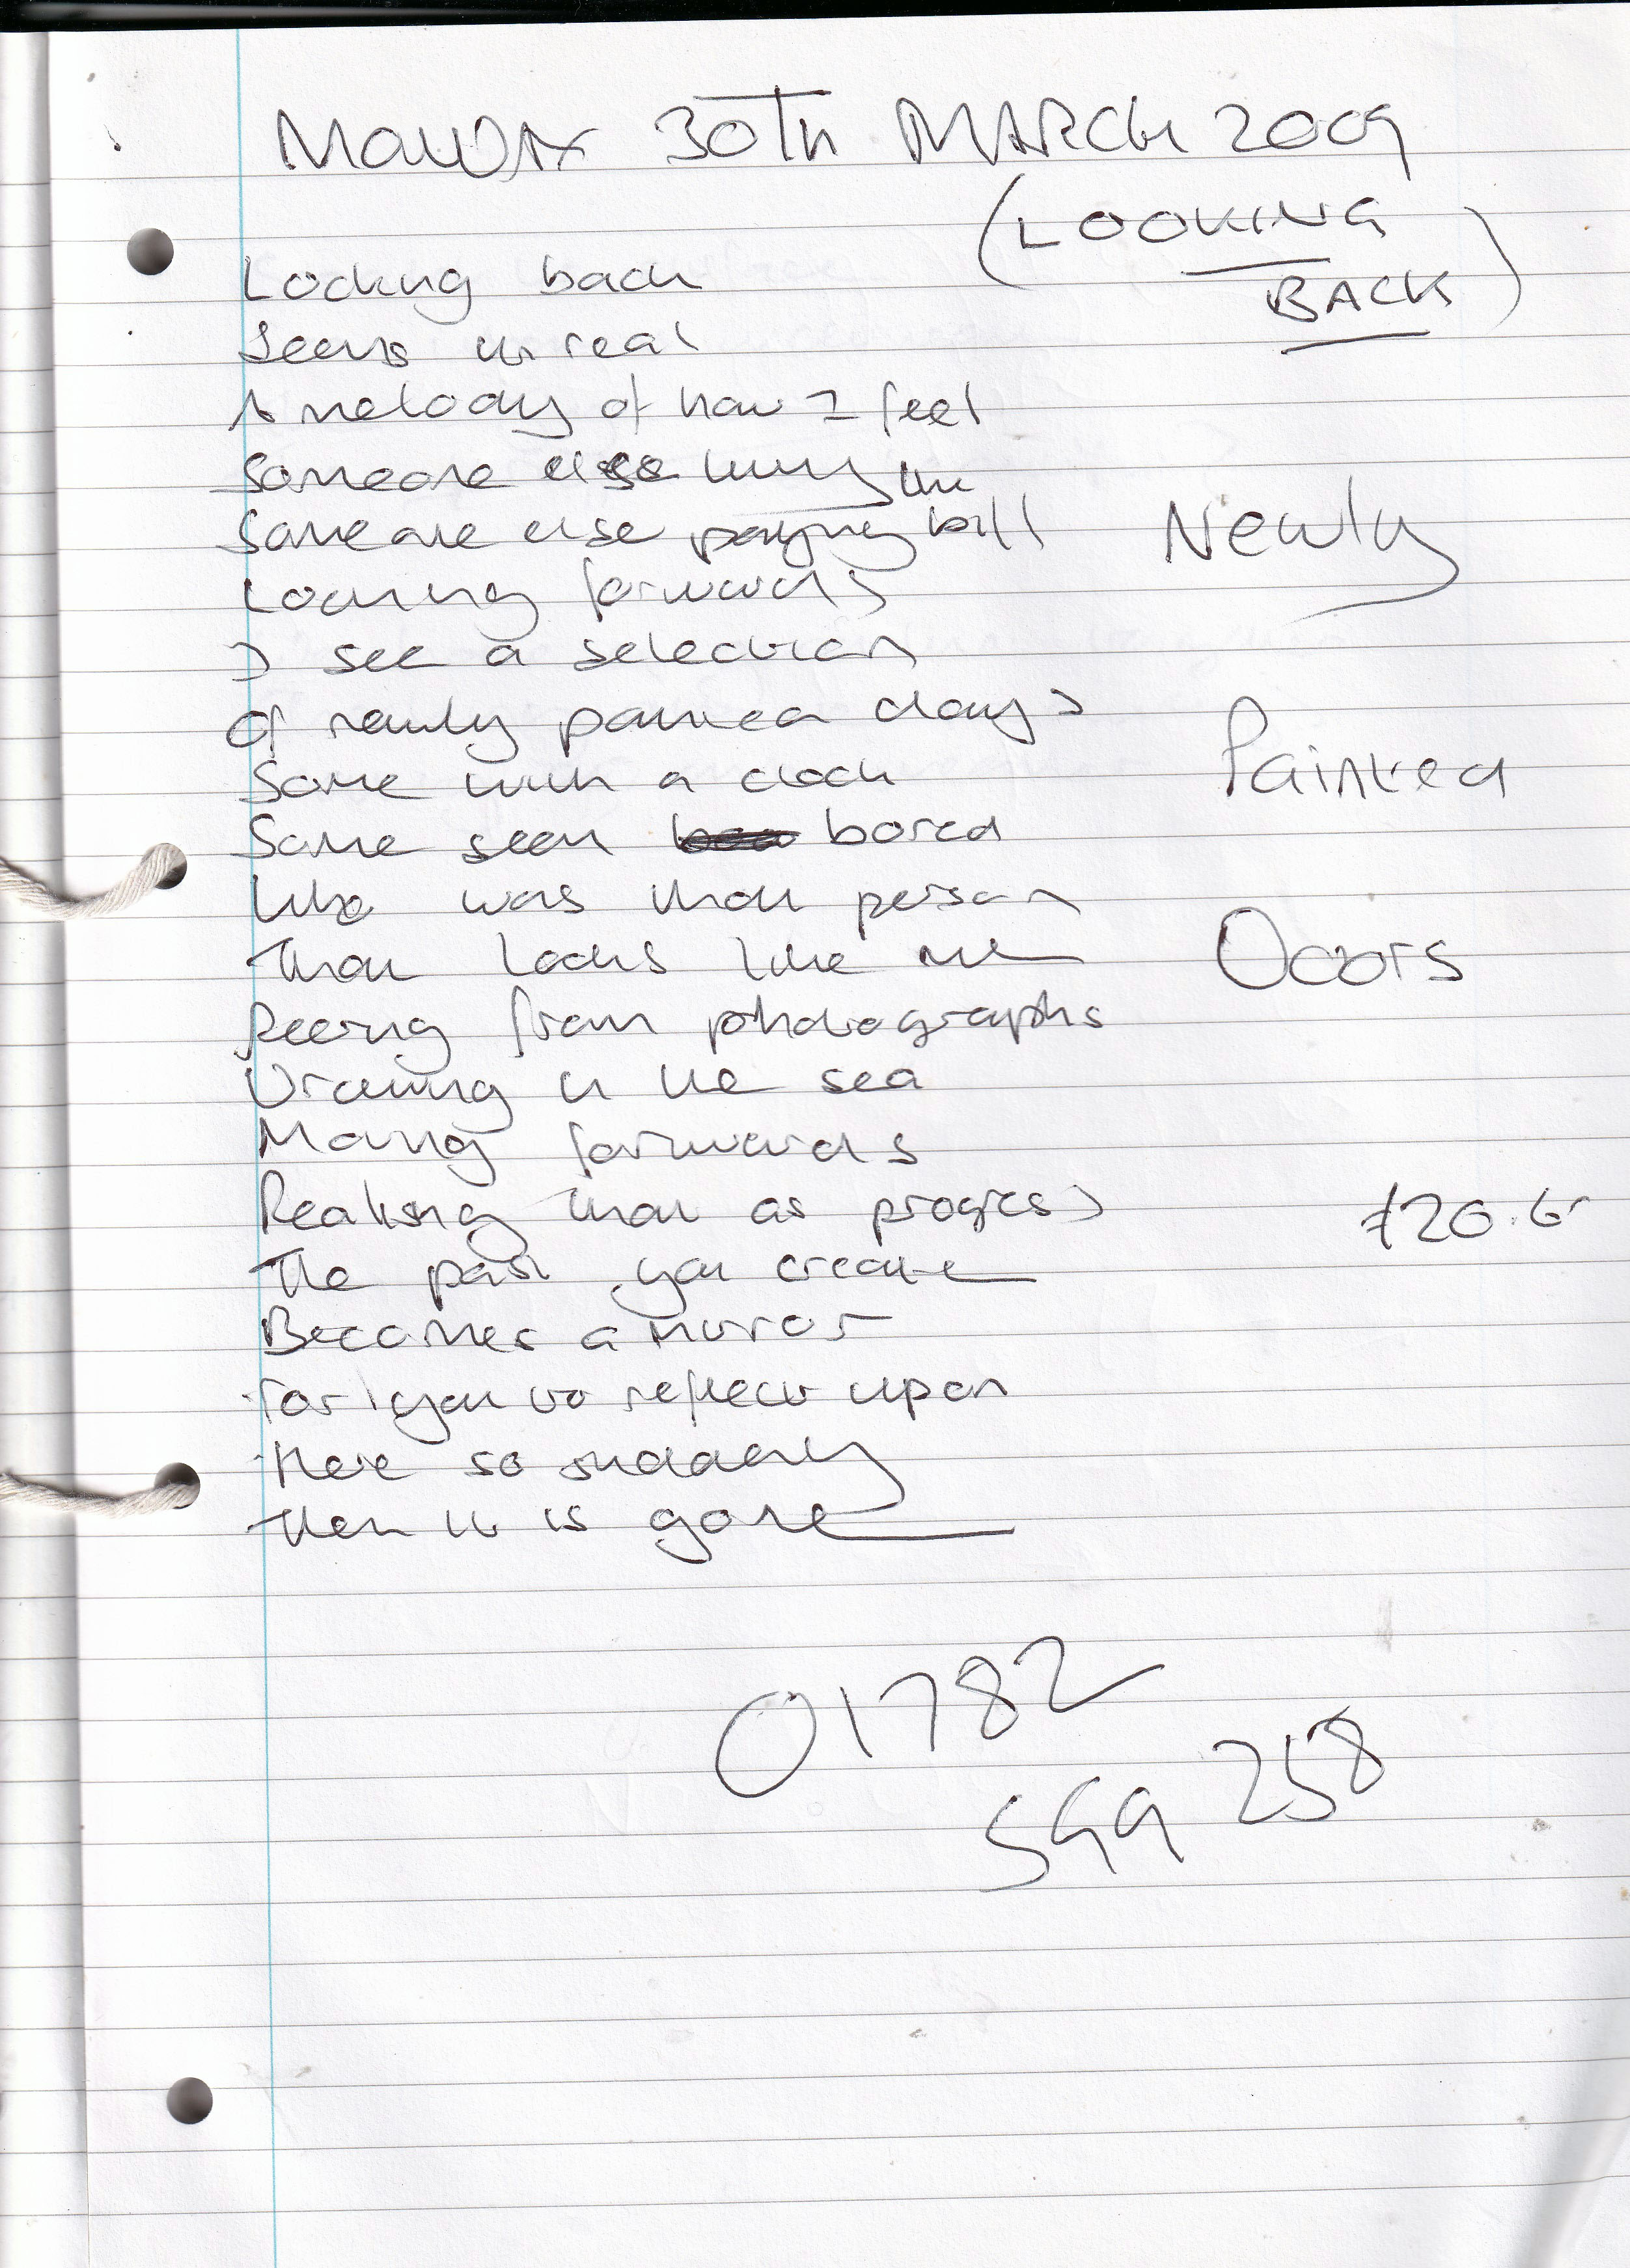 MONDAY 30TH MARCH 2009
(LOOKING
BACK)
Looking back
Seems unreal
A melody of how I feel
Someone else living
the
Someone else paying bill
Newly
Looking forwards
I see a selection
Of newly painted days
Painted
Some with a clock
Some seem bored
Who was that person
That looks like me
Doors
Peering from photographs
Drowning in the sea
Moving forwards
Realising that as progress
£20.
The past you create
Becomes a mirror
For you to reflect upon
Here so suddenly
Then it is gone
01782
599 258